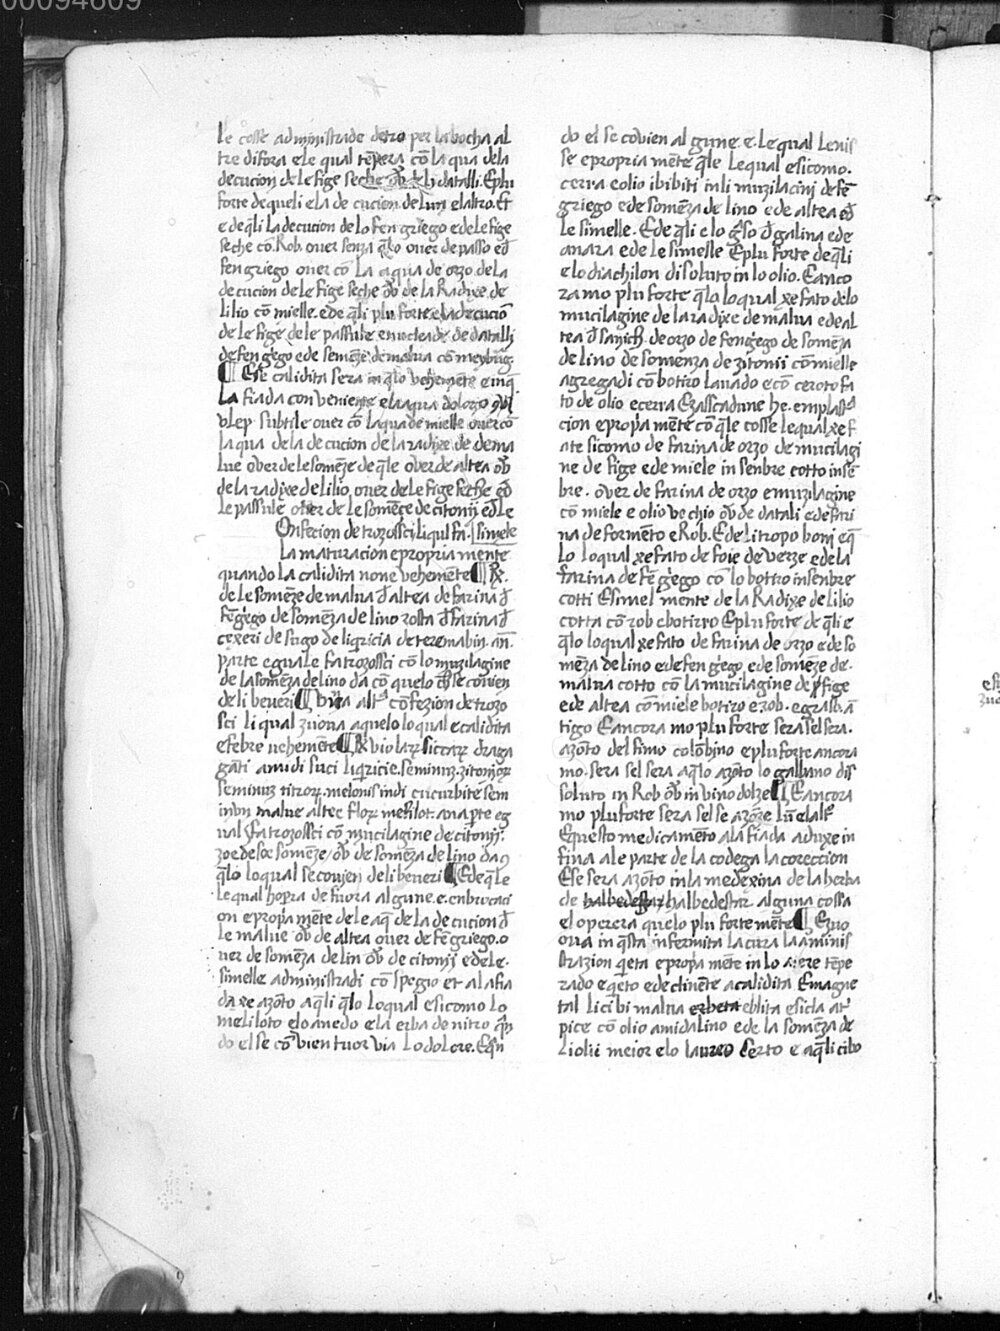 00094609
Le cosse administrade dẽtro per la bocha al
tre difora e le qual tẽpera cõ la qua dela
decucion de le fige seche ov̅ de li datalli. E plu
forte de queli e la de cucion de luni el altro. Et
e de q̃li la decucion de lo fen griego e de le fige
seche cõ Rob. over senza q̃lo over de passo e d̅
fen griego over cõ la aqua de orzo dela
de cucion de le fige seche ov̅ de la Radixe de
lilio cõ mielle. e de q̃li plu forte e la decuciõ
de le fige de le passule enucleade de datalli
de fen g̃ego e de semẽze de malva cõ
¶ E se calidita sera in q̃lo vehemẽte e
La fiada conveniente e la aqua dolorzo
ulep subtile over cõ laqua de mielle over cõ
la qua de la de cucion de la radixe de de ma
lue over de le somẽze de q̃le over de altea ov̅
de la radixe de lilio over de le fige seche e d̅
le passule over de le somẽçe de citonij e d̅ le
Onfecion de trozossci liqul fa. simele
la maturacion e propria mente
quando la calidita none vehemẽte ¶ ℞.
de le somẽze de malva d̅ altea de farina d̅
fẽg̃ego de somẽza de lino rosta d̅ farina d̅
cexeri de sugo de liq̃ricia de terematin. añ.
parte eguale fa trozossci cõ lo muzilagine
de la somẽza de lino da cõ quelo ch̅ se convien
de li beveri ¶ Una alt̃ cõfezion de trozo
sci li qual zuova a quelo lo qual e calidita
e febre vehemẽte ¶ ℞ violar̃ siccar̃ draga
gãti amidi suci liq̃ricie. seminuz. zitonior̃
seminuz titror̃. melonis indi cucurbite sem
inun malue altee flor̃ melilot. ana p̃te eg
ual fa trozossci cõ mucilagine de citonij.
zoe de soe somẽze / ov̅ de somẽza de lino da 9
q̃lo lo qual se convien de li beveri ¶ E de q̃le
le qual hop̃a de fuora algune. e. enbrocaci
on e propa mẽte de le aq̃ de la de cucion d̅
le malue ov̅ de altea over de fẽ griego. o
ver de somẽza de lin ov̅ de citonij e de le.
simelle administradi cõ spẽgio et ala fia
da xe azõto a q̃li q̃lo lo qual e sicomo lo
meliloto e lo anedo e la erba de nitro q̃n
do el se cõ vien tuor via lo dolore. E q̃n
do el se cõvien al gune. e. le qual lenis
se e propria mẽte q̃le le qual e sicomo.
cerra e olio ibibiti in li muzilacini de fẽ
griego e de somẽza de lino e de altea e d̅
le simelle. E de q̃li e lo g̃so d̅ galina e de
anara e de le simelle E plu forte de q̃li
e lo diachilon disoluto in lo olio. E anco
ra mo plu forte q̃lo lo qual xe fato de lo
mucilagine de la radixe de malva e de al
tea d̅ sanich. de orzo de feng̃ego de somẽza
de lino de somenza de zitonii cõ mielle
agregadi cõ botiro lavado e cõ ceroto fa
to de olio e cerra E zasscadune he. emplast̃
cion e propa mẽte cõ q̃le cosse le qual xe f
ate sicomo de farina de orzo de mucilagi
ne de fige e de miele in senbre cotto in sẽ
bre. over de farina de orzo e muzilagine
cõ miele e olio vechio ov̅ de datali e de fari
na de formẽto e Rob. E de li tropo boni e q̃
lo lo qual xe fato de foie de verze e de la
farina de fẽ g̃ego cõ lo bottro in senbre
cotti E simel mente de la Radixe de lilio
cotta cõ rob e botirro E plu forte de q̃li e
q̃lo lo qual xe fato de farina de orzo e de so
mẽza de lino e de fen g̃ego. e de somẽze de
malva cotto cõ la mucilagine de fige
e de altea cõ miele botiro e rob. e graso ã
tigo E ancora mo plu forte sera sel sera.
azõto del fimo colõbino e plu forte ancora
mo. sera sel sera a q̃lo azõto lo galbano dis
soluto in Rob ov̅ in vino dolze ¶ E ancora
mo plu forte sera sel se azõze lũ e lalt̃
E questo medicamẽto a la fiada aduxe in
fina a le parte de la codega la corecion
E se sera azõto in la medexina de la herba
de halbedestar halbedestar alguna cossa
el operera quelo plu forte mẽte ¶ E zuo
ova in q̃sta infermita la cura la aminis
strazion q̃eta e propa mẽte in lo aiere tẽpe
rado e q̃eto e declinẽte a calidita E magne
tal lici bi malva erbeta eblita e sicla at̃
pice cõ olio amidalino e de la somẽza de
Liolii meior e lo laureo Certo e a q̃li cibo